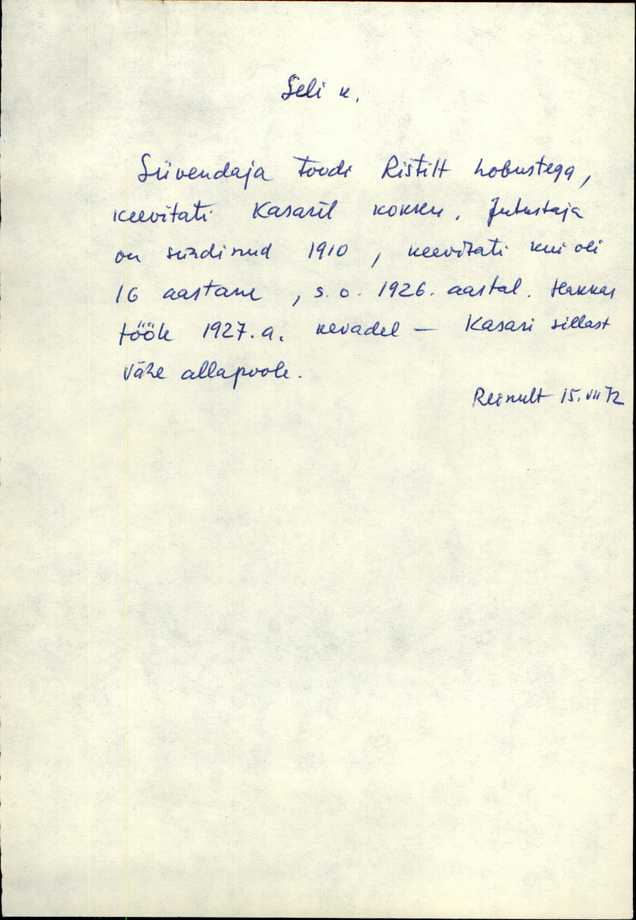 Seli k.
Süvendaja toodi Ristilt hobustega,
keevitati Kasaril kokku. Jutustaja
on sündinud 1910, keevitati kui oli
16 aastane, s.o. 1926. aastal. Hakkas
tööle 1927.a. kevadel — Kasari sillast
vähe allapoole.
Reinult 15.VII 72